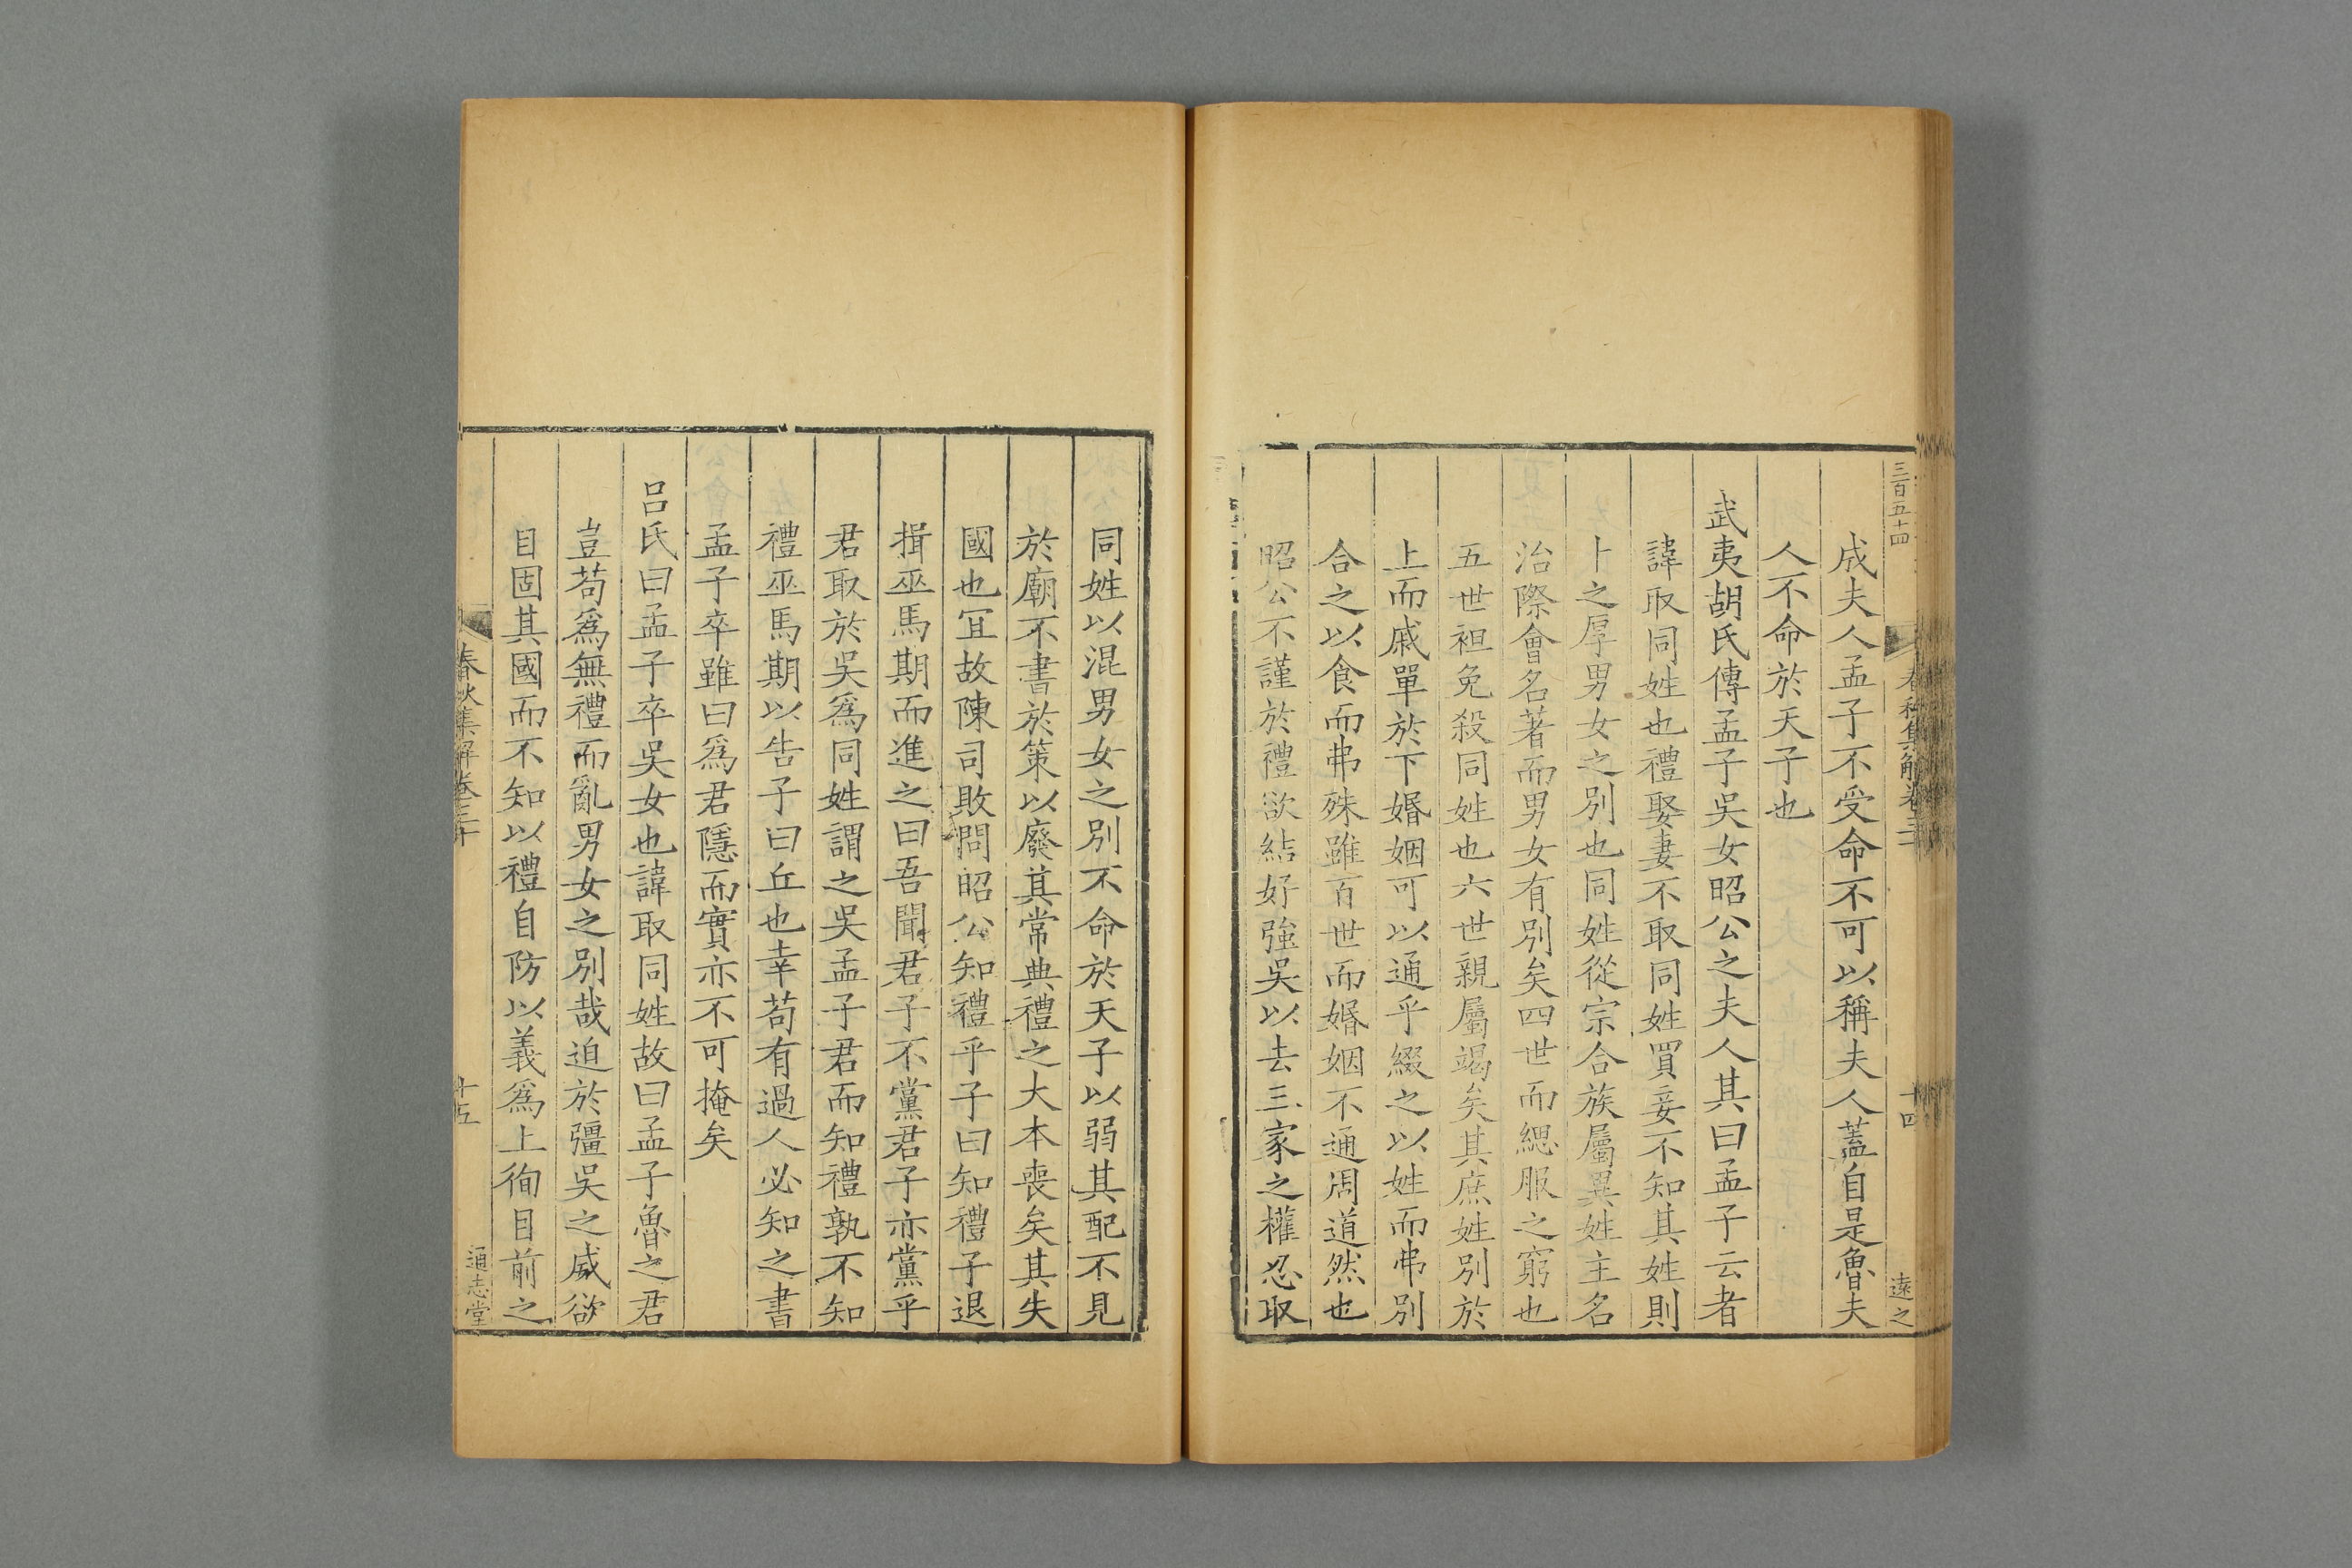 三百五十四
春秋集解卷三十
十四
遠之
成夫人孟子不受命不可以稱夫人蓋自是魯夫
人不命於天子也
武夷胡氏傳孟子吳女昭公之夫人其曰孟子云者
諱取同姓也禮娶妻不取同姓買妾不知其姓則
卜之厚男女之別也同姓從宗合族屬異姓主名
治際會名著而男女有別矣四世而緦服之窮也
五世袒免殺同姓也六世親屬竭矣其庶姓別於
上而戚單於下婚姻可以通乎綴之以姓而弗別
合之以食而弗殊雖百世而婚姻不通周道然也
昭公不謹於禮欲結好強吳以去三家之權忍取
同姓以混男女之別不命於天子以弱其配不見
於廟不書於策以廢其常典禮之大本喪矣其失
國也冝故陳司敗問昭公知禮乎子曰知禮子退
揖巫馬期而進之曰吾聞君子不黨君子亦黨乎
君取於吳爲同姓謂之吳孟子君而知禮孰不知
禮巫馬期以告子曰丘也幸苟有過人必知之書
孟子卒雖曰爲君隱而實亦不可掩矣
呂氏曰孟子卒吳女也諱取同姓故曰孟子魯之君
豈苟爲無禮而亂男女之別哉迫於彊吳之威欲
自固其國而不知以禮自防以義爲上徇目前之
春秋集解卷三十
十五
通志堂